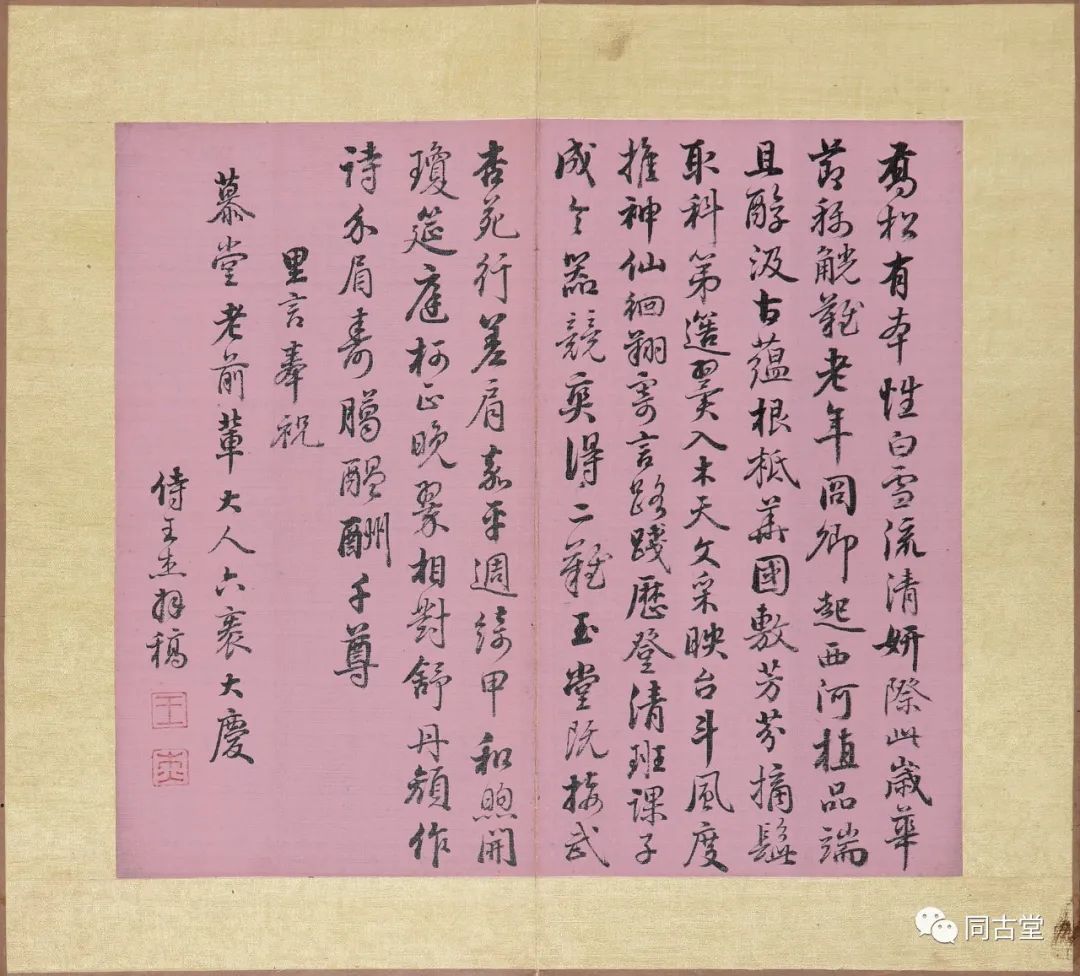 喬松有本性白雪流清妍際此歲華
節稱觥難老年冏卿起西河植品端
且醇汲古蘊根柢華國敷芬芳摛髭
取科第選翼入木天文采映台斗風度
推神仙徊翔寄言路踐歷登清班課子
成令器競爽得二難玉堂既接武
杏苑行差肩嘉平週綺甲和煦開
瓊筵庭柯正晚翠相對舒丹顏作
詩介眉壽臈醞酬千尊
里言奉祝
慕堂老前輩大人六袠大慶
侍王杰拜稿
王
杰
同古堂